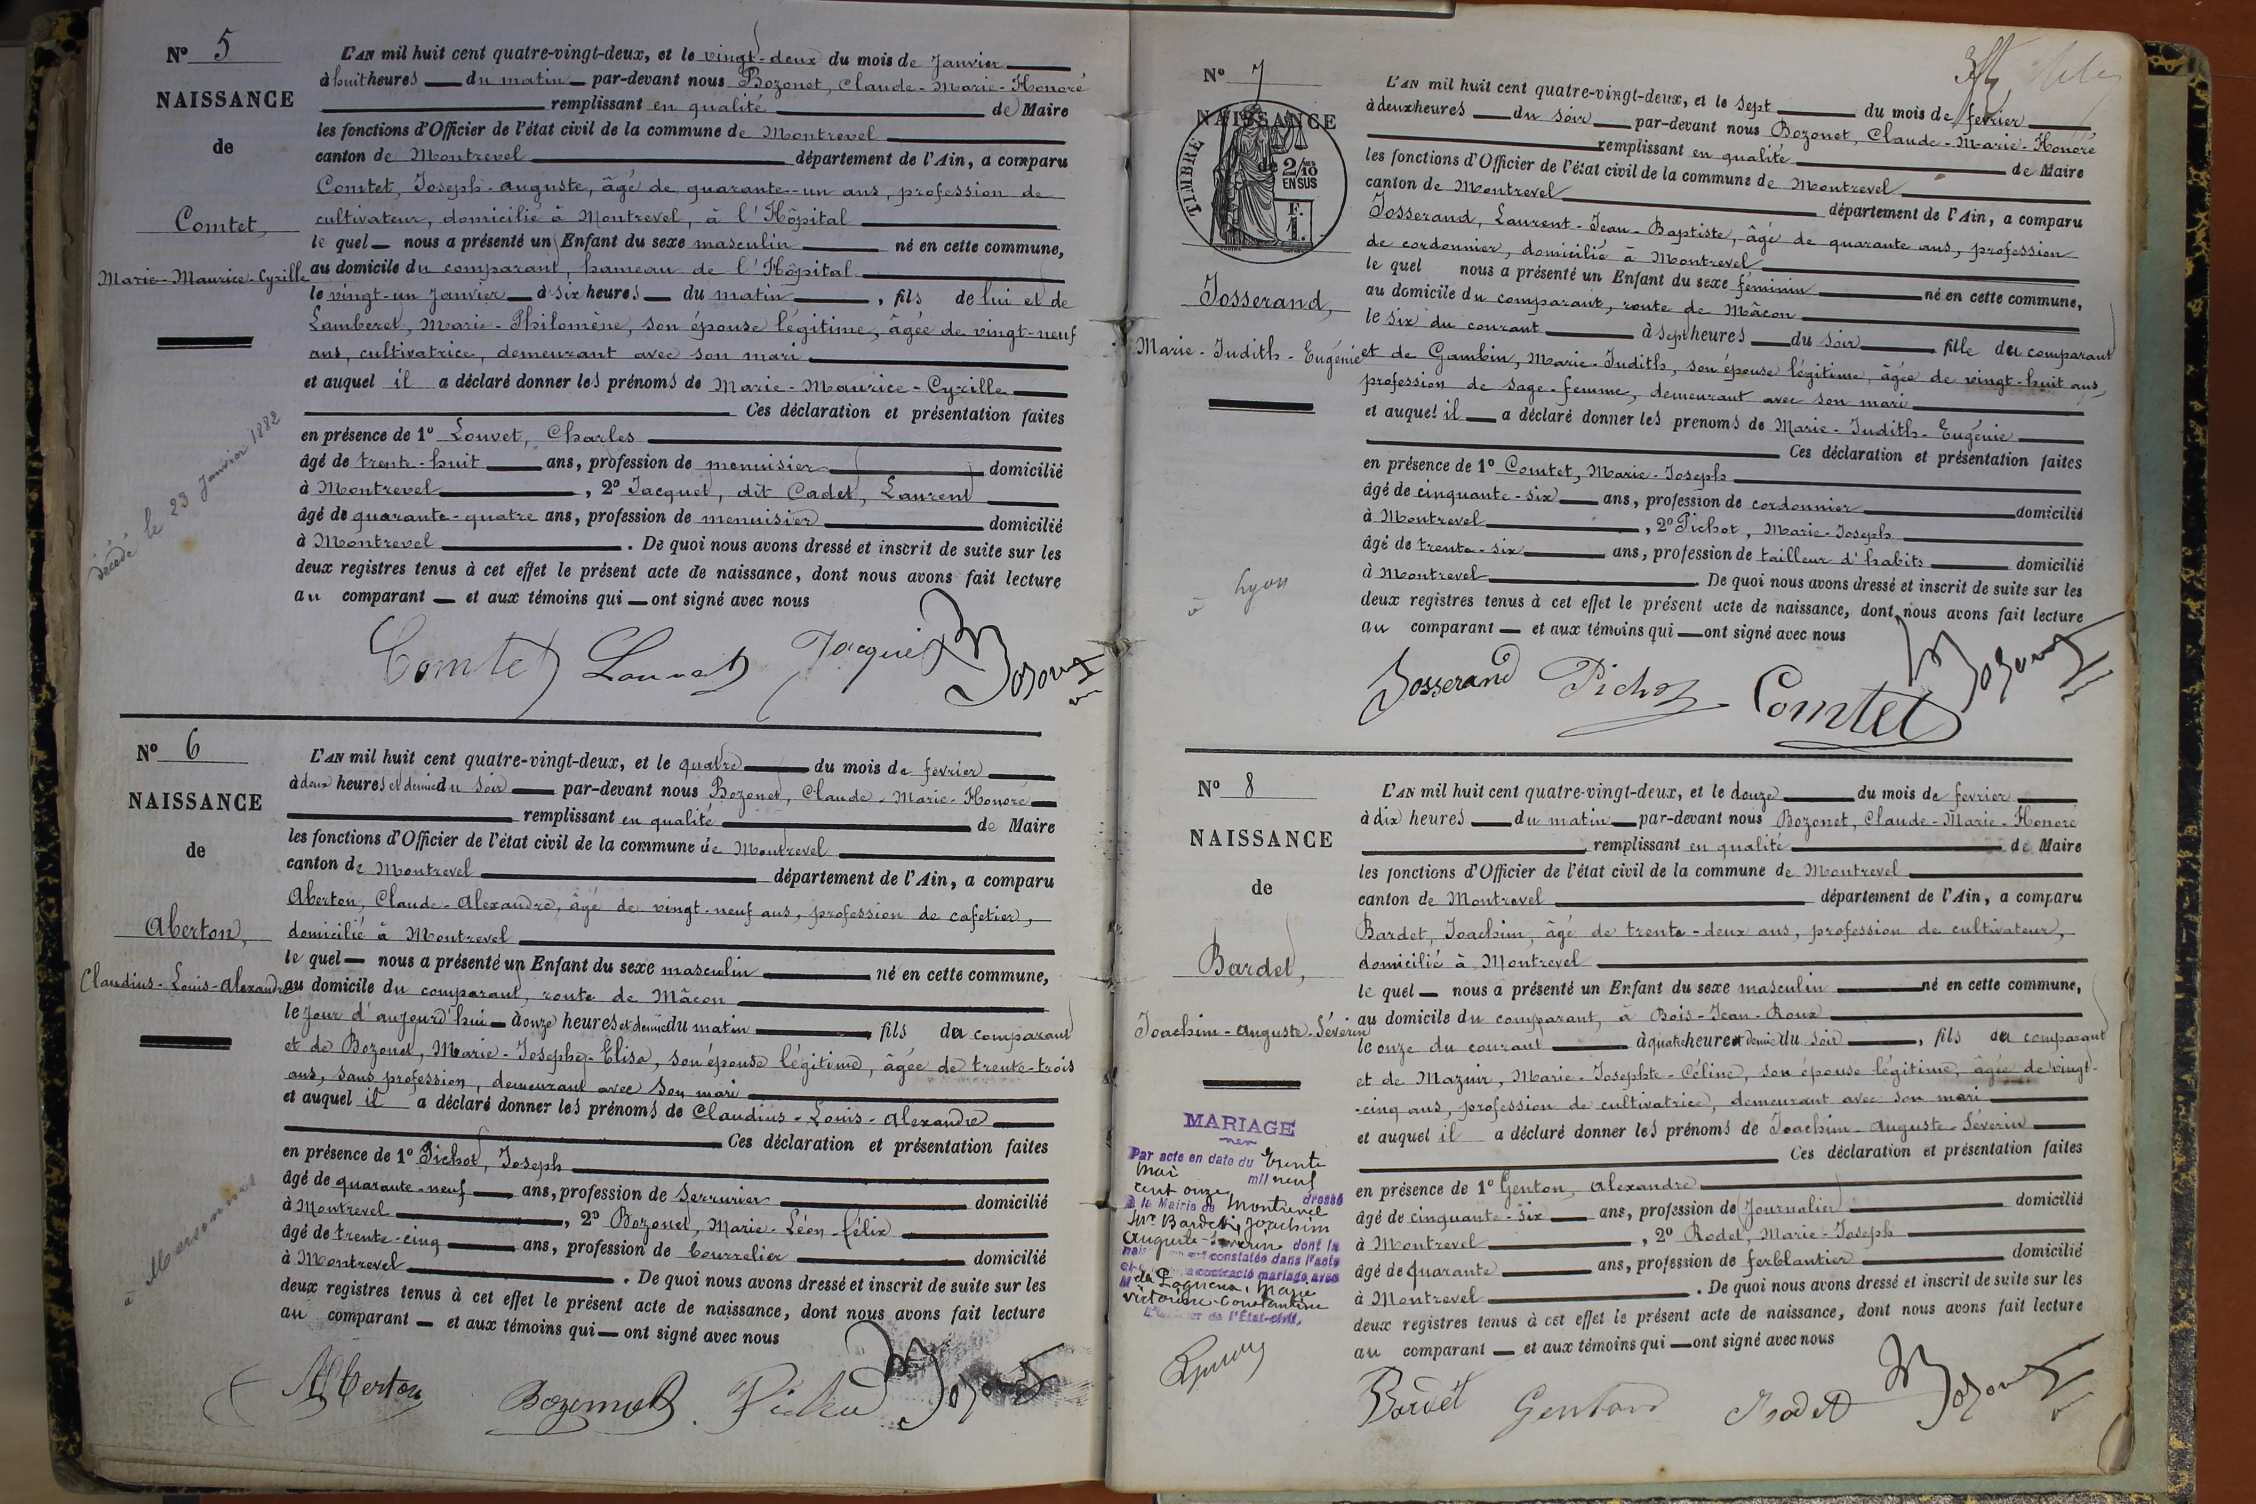 N° 5
NAISSANCE
de
Comtet,
Marie-Maurice-Cyrille
décédé le 23 Janvier 1882
L'AN mil huit cent quatre-vingt-deux, et le vingt-deux du mois de Janvier
à huit heures du matin par-devant nous Bozonet, Claude-Marie-Honoré
remplissant en qualité de Maire
les fonctions d'Officier de l'état civil de la commune de Montrevel
canton de Montrevel département de l'Ain, a comparu
Comtet, Joseph-auguste, âgé de quarante-un ans, profession de
cultivateur, domicilié à Montrevel, à l'Hôpital
le quel nous a présenté un Enfant du sexe masculin né en cette commune,
au domicile du comparant, hameau de l'Hôpital
le vingt-un Janvier à six heures du matin, fils de lui et de
Lamberet, Marie-Philomène, son épouse légitime, âgée de vingt-neuf
ans, cultivatrice, demeurant avec son mari
et auquel il a déclaré donner les prénoms de Marie-Maurice-Cyrille
Ces déclaration et présentation faites
en présence de 1° Louvet, Charles
âgé de trente-huit ans, profession de menuisier domicilié
à Montrevel, 2° Jacquet, dit Cadet, Laurent
âgé de quarante-quatre ans, profession de menuisier domicilié
à Montrevel. De quoi nous avons dressé et inscrit de suite sur les
deux registres tenus à cet effet le présent acte de naissance, dont nous avons fait lecture
au comparant et aux témoins qui ont signé avec nous
Comtet Louvet Jacquet Bozonet
N° 6
NAISSANCE
de
Aberton,
Claudius-Louis-Alexandre
L'AN mil huit cent quatre-vingt-deux, et le quatre du mois de février
à deux heures et demie du soir par-devant nous Bozonet, Claude-Marie-Honoré
remplissant en qualité de Maire
les fonctions d'Officier de l'état civil de la commune de Montrevel
canton de Montrevel département de l'Ain, a comparu
Aberton, Claude-Alexandre, âgé de vingt-neuf ans, profession de cafetier,
domicilié à Montrevel
le quel nous a présenté un Enfant du sexe masculin né en cette commune,
au domicile du comparant, route de Mâcon
le jour d'aujourd'hui à onze heures et demie du matin, fils du comparant
et de Bozonet, Marie-Josephe-Elisa, son épouse légitime, âgée de trente-trois
ans, sans profession, demeurant avec son mari
et auquel il a déclaré donner les prénoms de Claudius-Louis-Alexandre
Ces déclaration et présentation faites
en présence de 1° Pichot, Joseph
âgé de quarante-neuf ans, profession de Serrurier domicilié
à Montrevel, 2° Bozonet, Marie-Léon-félix
âgé de trente-cinq ans, profession de bourrelier domicilié
à Montrevel. De quoi nous avons dressé et inscrit de suite sur les
deux registres tenus à cet effet le présent acte de naissance, dont nous avons fait lecture
au comparant et aux témoins qui ont signé avec nous
Alberton Bozonnet Pichod Bozonet
N° 7
NAISSANCE
de
TIMBRE
2/10
EN SUS
F.
1.
Josserand,
Marie-Judith-Eugénie
à Lyon
L'AN mil huit cent quatre-vingt-deux, et le sept du mois de février
à deux heures du soir par-devant nous Bozonet, Claude-Marie-Honoré
remplissant en qualité de Maire
les fonctions d'Officier de l'état civil de la commune de Montrevel
canton de Montrevel département de l'Ain, a comparu
Josserand, Laurent-Jean-Baptiste, âgé de quarante ans, profession
de cordonnier, domicilié à Montrevel
le quel nous a présenté un Enfant du sexe féminin né en cette commune,
au domicile du comparant, route de Mâcon
le six du courant à sept heures du soir fille du comparant
et de Gambin, Marie-Judith, son épouse légitime, âgée de vingt-huit ans,
profession de sage-femme, demeurant avec son mari
et auquel il a déclaré donner les prénoms de Marie-Judith-Eugénie
Ces déclaration et présentation faites
en présence de 1° Comtet, Marie-Joseph
âgé de cinquante-six ans, profession de cordonnier domicilié
à Montrevel, 2° Pichot, Marie-Joseph
âgé de trente-six ans, profession de tailleur d'habits domicilié
à Montrevel. De quoi nous avons dressé et inscrit de suite sur les
deux registres tenus à cet effet le présent acte de naissance, dont nous avons fait lecture
au comparant et aux témoins qui ont signé avec nous
Josserand Pichot Comtet Bozonet
N° 8
NAISSANCE
de
Bardet,
Joachim-Auguste-Séverin
MARIAGE
Par acte en date du trente
mai mil neuf
cent onze dressé
à la Mairie de Montrevel
Mr Bardet, Joachim
Auguste-Séverin dont la
constatée dans l'acte
a contracté mariage avec
M
Victorine-Constantine
de l'Etat-civil,
L'AN mil huit cent quatre-vingt-deux, et le douze du mois de février
à dix heures du matin par-devant nous Bozonet, Claude-Marie-Honoré
remplissant en qualité de Maire
les fonctions d'Officier de l'état civil de la commune de Montrevel
canton de Montrevel département de l'Ain, a comparu
Bardet, Joachim, âgé de trente-deux ans, profession de cultivateur,
domicilié à Montrevel
le quel nous a présenté un Enfant du sexe masculin né en cette commune,
au domicile du comparant, à Bois-Jean-Roux
le onze du courant à quatre heures et demie du soir, fils du comparant
et de Mazuir, Marie-Josephte-Céline, son épouse légitime, âgée de vingt-
-cinq ans, profession de cultivatrice, demeurant avec son mari
et auquel il a déclaré donner les prénoms de Joachim-Auguste-Séverin
Ces déclaration et présentation faites
en présence de 1° Genton, Alexandre
âgé de cinquante-six ans, profession de Journalier domicilié
à Montrevel, 2° Rodet, Marie-Joseph
âgé de quarante ans, profession de ferblantier domicilié
à Montrevel. De quoi nous avons dressé et inscrit de suite sur les
deux registres tenus à cet effet le présent acte de naissance, dont nous avons fait lecture
au comparant et aux témoins qui ont signé avec nous
Bardet Genton Rodet Bozonet